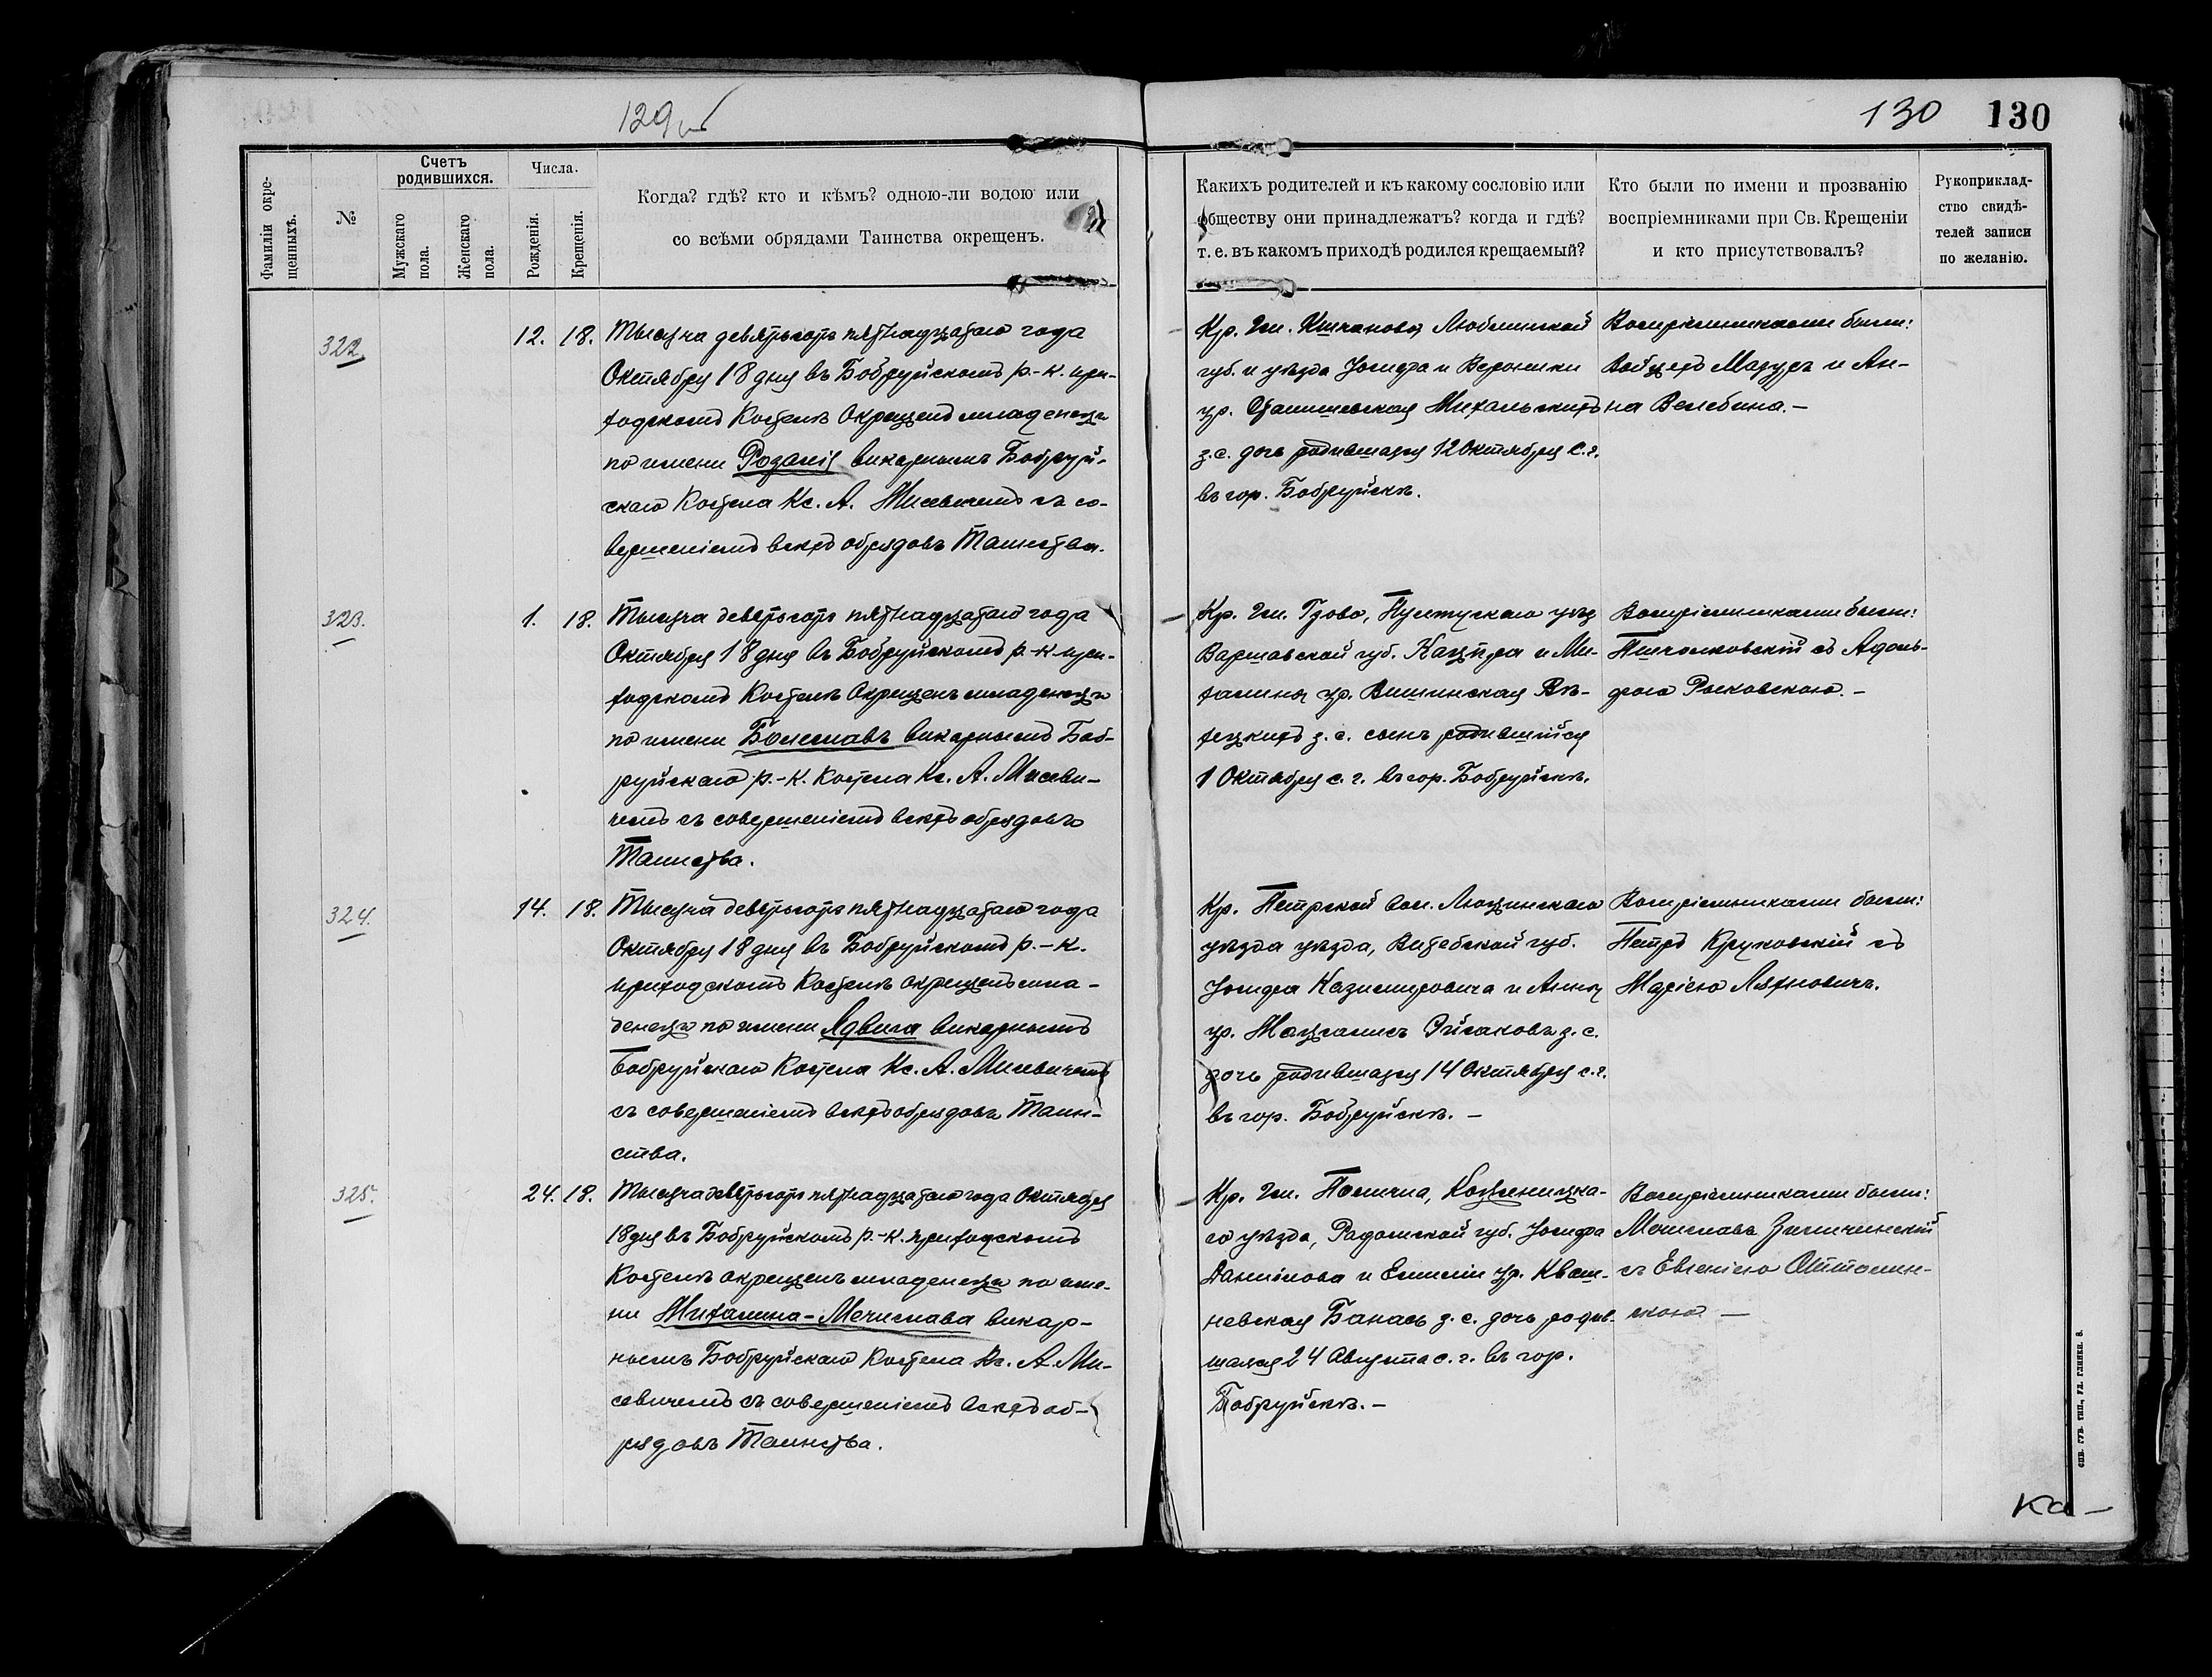 129об
130 130
Фамиліи окре-
щенныхъ.
№
Счетъ
родившихся.
Мужскаго
пола.
Женскаго
пола.
Числа.
Рожденія.
Крещенія.
Когда? гдѣ? кто и кѣмъ? одною-ли водою или
со всѣми обрядами Таинства окрещенъ.
Какихъ родителей и къ какому сословію или
обществу они принадлежатъ? когда и гдѣ?
т. е. въ какомъ приходѣ родился крещаемый?
Кто были по имени и прозванію
воспріемниками при Св. Крещеніи
и кто присутствовалъ?
Рукоприклад-
ство свидѣ-
телей записи
по желанію.
322.
12. 18.
Тысяча девятьсотъ пятнадцатаго года
Октября 18 дня въ Бобруйскомъ р.-к. при-
ходскомъ Костелѣ Окрещенъ младенецъ
по имени Розалія викарнымъ Бобруй-
скаго Костела Кс. А. Мисевичемъ съ со-
вершеніемъ всѣхъ обрядовъ Таинства.
Кр. Гм. Люблинской
губ. и уѣзда Іосифа и Вероники
ур. Михальскихъ
з.с. дочь родившаяся 12 Октября с.г.
въ гор. Бобруйскѣ.
Воспріемниками были:
Войцехъ Мазуръ и Ан-
на Велебина.-
323.
1. 18.
Тысяча девятьсотъ пятнадцатаго года
Октября 18 дня въ Бобруйскомъ р.-к. при-
ходскомъ Костелѣ Окрещенъ младенецъ
по имени Болеславъ викарнымъ Боб-
руйскаго р.-к. Костела Кс. А. Мисеви-
чемъ съ совершеніемъ всѣхъ обрядовъ
Таинства.
Кр. Гм. Гзово, Пултускаго уѣз
Варшавской губ. Кацпра и Ми-
халины ур. Вишинская Вѣ-
техкихъ з.с. сынъ родившійся
1 Октября с.г. въ гор. Бобруйскѣ.
Воспріемниками были:
съ Адоль-
фою Рыковскою.-
324.
14. 18.
Тысяча девятьсотъ пятнадцатаго года
Октября 18 дня въ Бобруйскомъ р.-к.
приходскомъ Костелѣ окрещенъ мла-
денецъ по имени Ядвига викарнымъ
Бобруйскаго Костела Кс. А. Мисевичемъ
съ совершеніемъ всѣхъ обрядовъ Таин-
ства.
Кр. вол. Люцинскаго
уѣзда уѣзда, Витебской губ.
Іосифа Казимировича и Анны
ур. з.с.
дочь родившаяся 14 Октября с.г.
въ гор. Бобруйскѣ.-
Воспріемниками были:
Петръ Круковскій съ
Маріею Ляхновичъ.
325.
24. 18.
Тысяча девятьсотъ пятнадцатаго года Октября
18 дня въ Бобруйскомъ р.-к. приходскомъ
Костелѣ окрещенъ младенецъ по име-
ни Михалина-Мечислава викар-
нымъ Бобруйскаго Костела Кс. А. Ми-
севичемъ съ совершеніемъ всѣхъ об-
рядовъ Таинства.
Кр. Гм. Козеницка-
го уѣзда, Радомской губ. Іосифа
Даніилова и Емиліи ур. Кваш-
невская Банась з.с. дочь родив-
шаяся 24 Августа с.г. въ гор.
Бобруйскѣ.-
Воспріемниками были:
съ Евгеніею
скою —
Ка-
СПБ. ГУБ. ТИП., УЛ. ГЛИНКИ. 8.